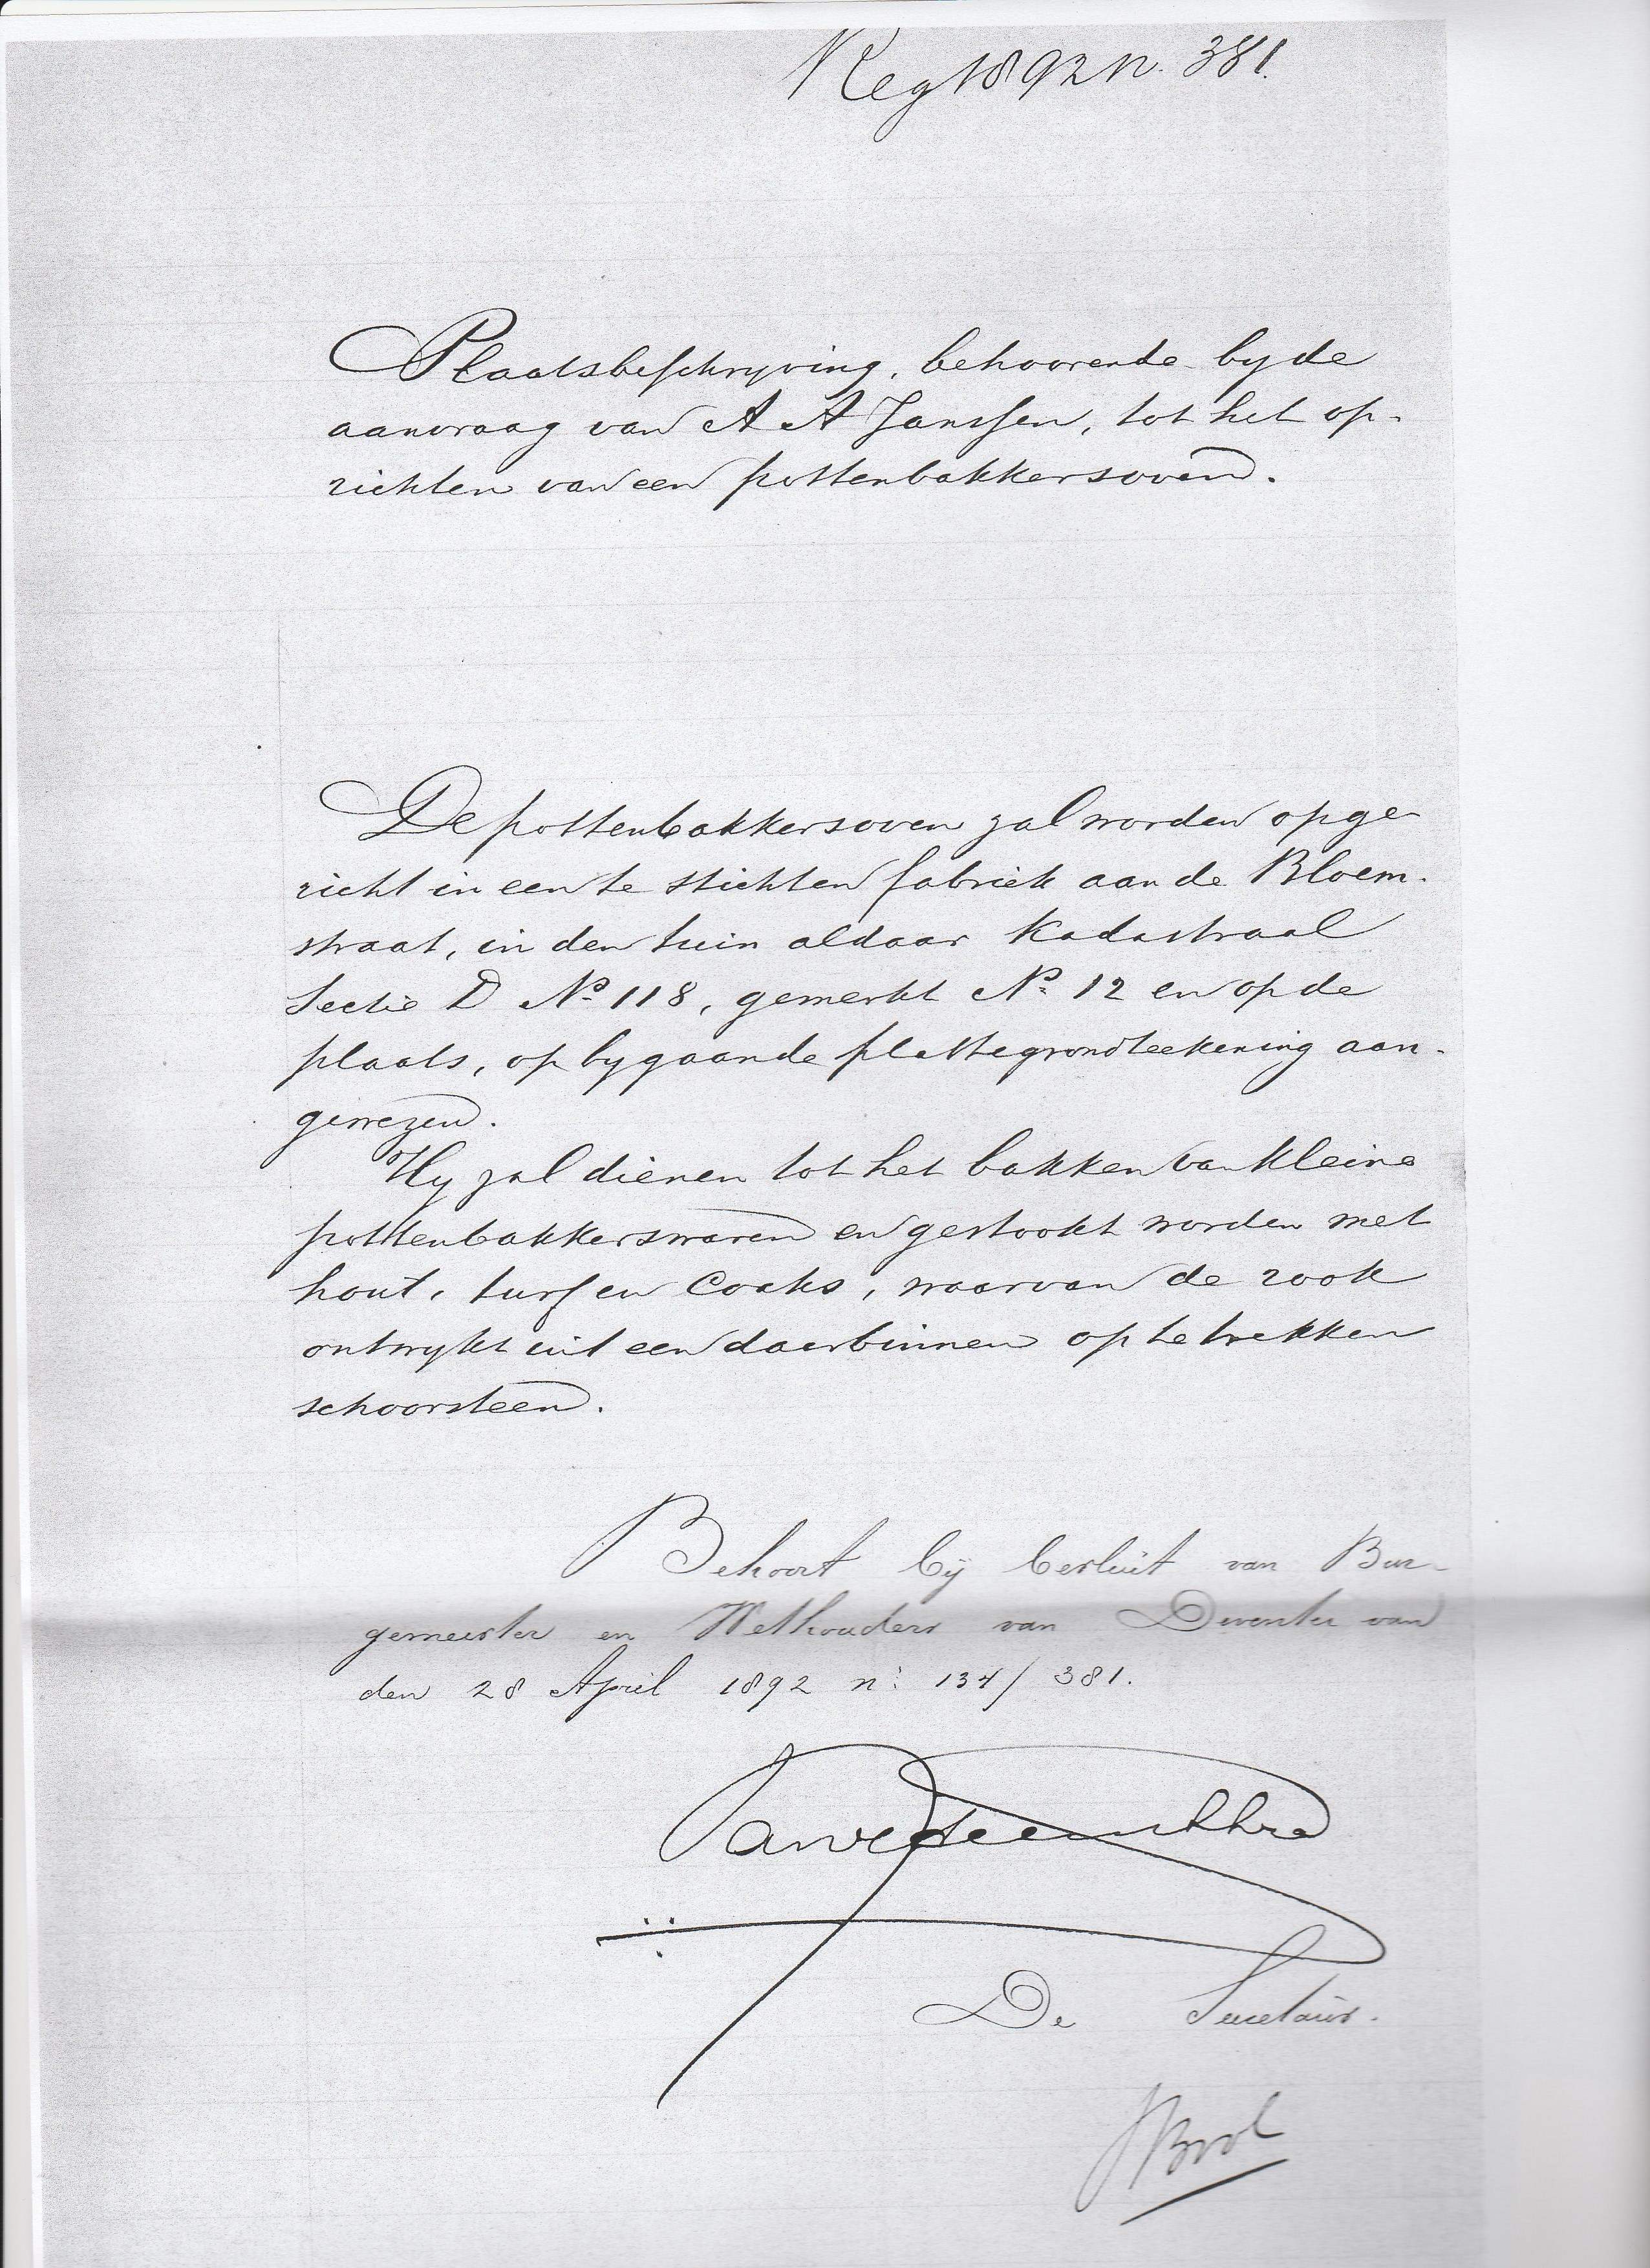 Reg 1892 n. 381.
Plaatsbeschryving, behoorende by de
aanvraag van A A Janssen, tot het op-
richten van een pottenbakkersoven.
De pottenbakkersoven zal worden opge-
richt in een te stichten fabriek aan de Bloem-
straat, in den tuin aldaar Kadastraal
Sectie D No. 118, gemerkt No. 12 en op de
plaats, op bygaande plattegrondteekening aan-
gewezen.
Hy zal dienen tot het bakken van kleine
pottenbakkerswaren en gestookt worden met
hout, turf en Coaks, waarvan de rook
ontwykt uit een daarbinnen op te trekken
schoorsteen.
Behoort bij besluit van Bur-
gemeester en Wethouders van Deventer van
den 28 April 1892 n: 134/381.
De Secretaris.